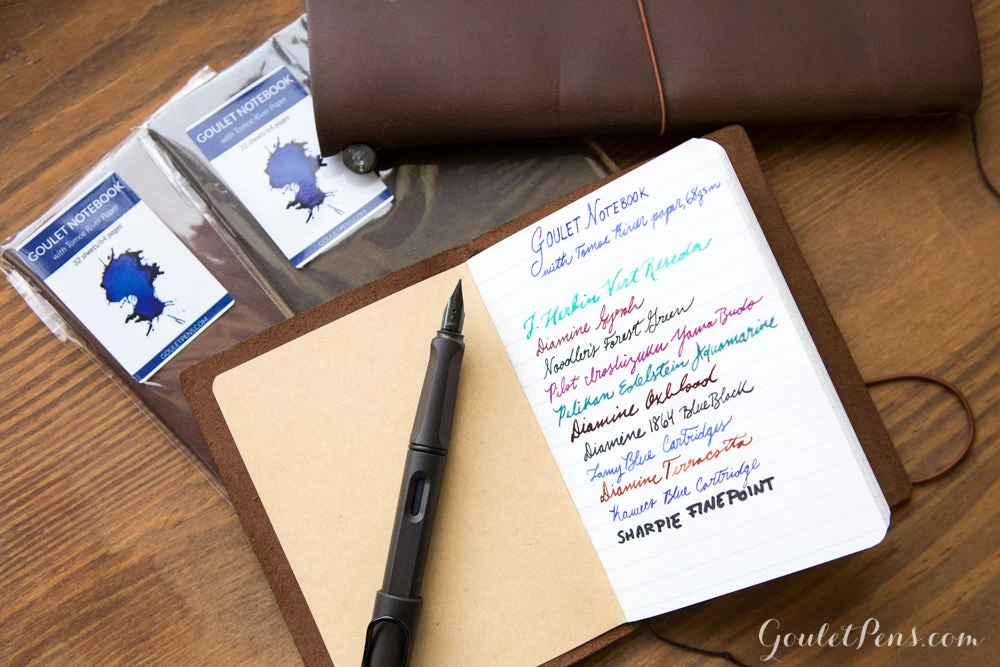 GOULET NOTEBOOK
with Tomoe River Paper
32 sheets/64 pages
GOULETPENS.COM
GOULET NOTEBOOK
with Tomoe River Paper
32 sheets/64 pages
GOULETPENS.COM
GOULET NOTEBOOK
with Tomoe River paper, 68gsm
J. Herbin Vert Reseda
Diamine Syrah
Noodler's Forest Green
Pilot Iroshizuku Yama Budo
Pelikan Edelstein Aquamarine
Diamine Oxblood
Diamine 1864 Blue Black
Lamy Blue Cartridges
Diamine Terracotta
Kaweco Blue Cartridge
SHARPIE FINEPOINT
GouletPens.com